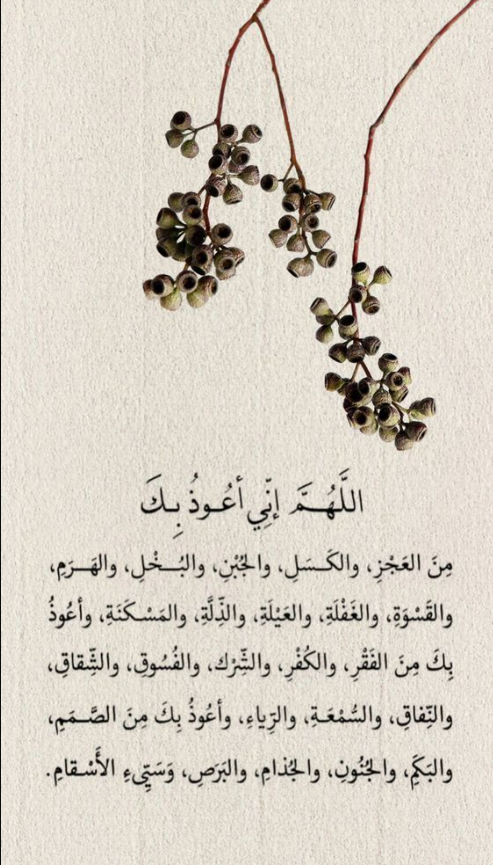 اللَّهُـمَّ إنِّي أعُـوذُ بِـكَ
مِنَ العَجْزِ، والكَـسَلِ، والجُبْنِ، والبُـخْلِ، والهَـرَمِ،
والقَسْوَةِ، والغَفْلَةِ، والعَيْلَةِ، والذِّلَّةِ، والمَسْـكَنَةِ، وأعُوذُ
بِكَ مِنَ الفَقْرِ، والكُفْرِ، والشِّرْك، والفُسُوقِ، والشِّقاقِ،
والنِّفاقِ، والسُّمْعَـةِ، والرِّياءِ، وأعُوذُ بِكَ مِنَ الصَّـمَمِ،
والبَكَمِ، والجُنُونِ، والجُذامِ، والبَرَصِ، وَسَيِّیءِ الأَسْـقامِ.